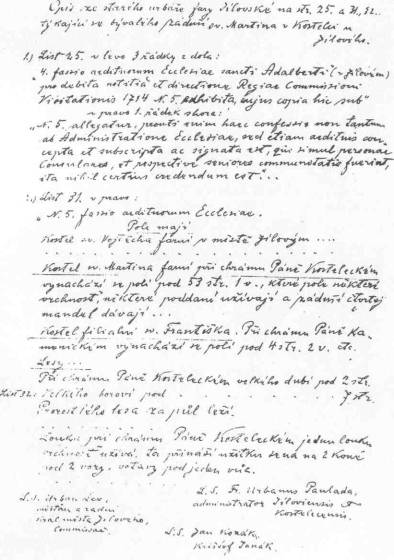 Opis ze starého urbáře fary Jílovské na str. 25. a 31., 32.
týkající se bývalého záduší sv. Martina v Kostelci u
Jílového.
1.) List 25. v levo 3 řádky z dola:
"4. fassio aedituorum Ecclesiae sancti Adalberti (v Jílovém)
pro debita notitia et directione Regiae Commissioni
Visitationis 1714 N. 5. adhibita, hujus copia hic sub"
v pravo 1. řádek shora:
"N. 5. allegatur, prouti enim haec confessio non tantum
ab Administratore Ecclesiae, sed etiam aedituis con-
cepta et subscripta ac signata est, qui simul personae
Consulares, et respective seniores communitatis fuerint,
ita nihil certius credendum est"...
2.) List 31. v pravo:
"N. 5. fassio aedituorum Ecclesiae.
Pole mají
Kostel sv. Vojtěcha farní v městě Jílovým ....
Kostel sv. Martina farní při chrámu Páně Kosteleckém
vynachází se polí pod 53 str. 1 v., které pole některé
vrchnost, některé poddaní užívají a záduší čtvrtej
mandel dávají ...
Kostel filialní sv. Františka. Při chrámu Páně Ka-
menickém vynachází se polí pod 4 str. 2 v. etc.
Lesy ...
Při chrámu Páně Kosteleckém velkého dubí pod 2 str.
List 32. Velkého boroví pod . . . . 7 str.
Porostlého lesa za půl leží.
Louka při chrámu Páně Kosteleckém jednu louku
vrchnost užívá. Ta přináší užitku sena na 2 koně
pod 2 vozy. otavy pod jeden vůz.
L. S. Fr. Urbanus Paulada,
administrator Jiloviensis et
Kostelecensis.
L. S. Urban
města Jílového,
L. S. Jan Kozák,
Kryštof Janák.